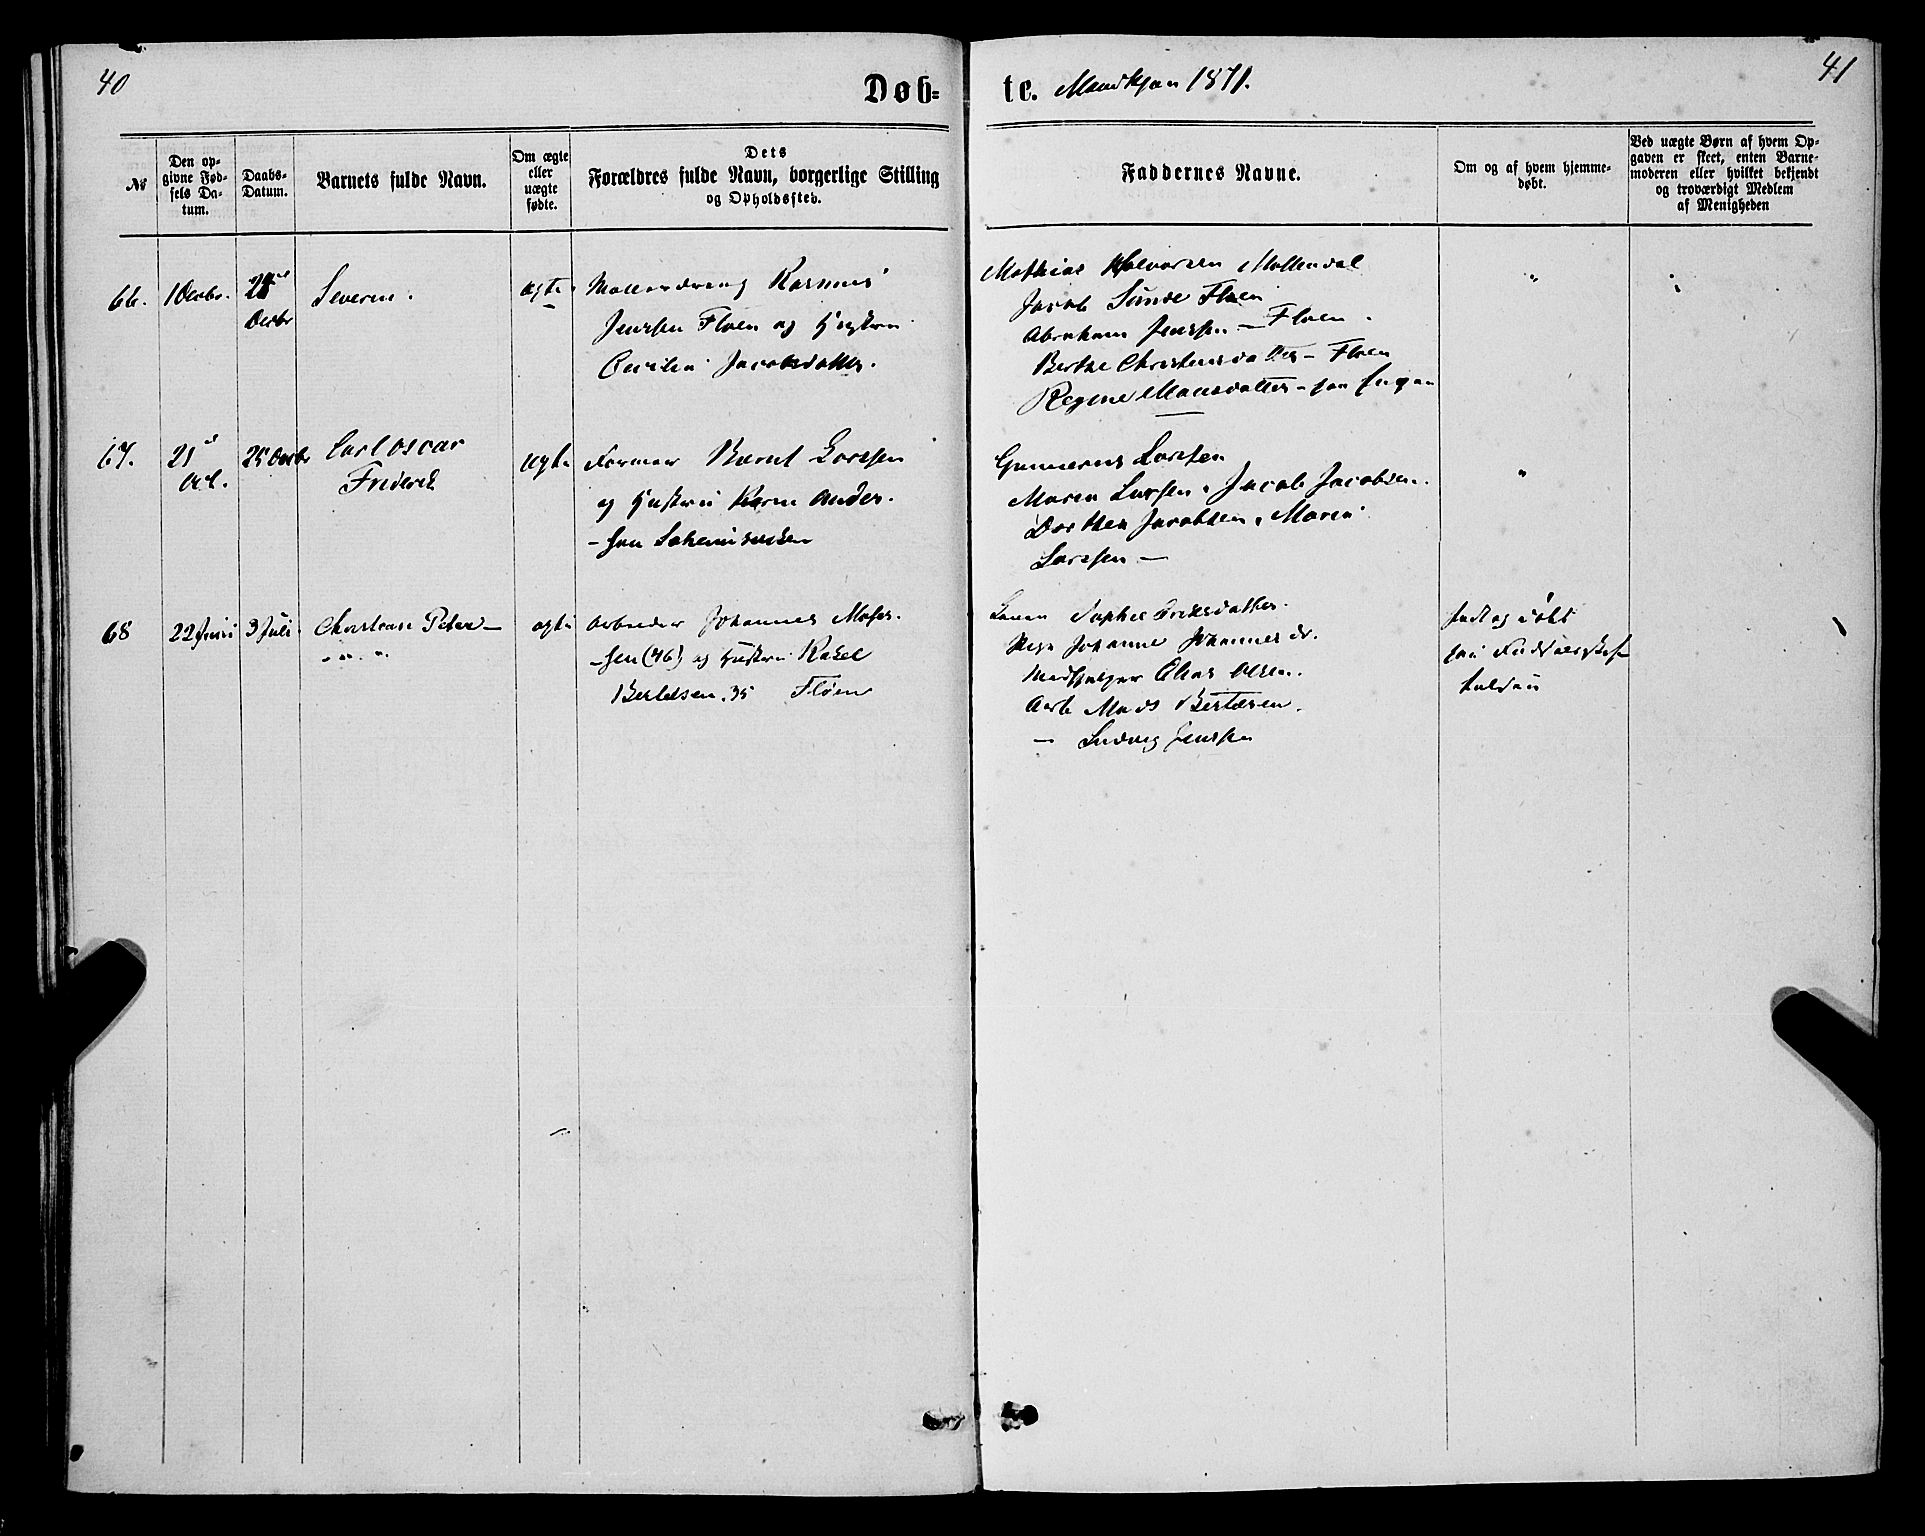 40
Døb-
te. Mandkjøn 1871.
41
№
Den op-
givne Fød-
sels Da-
tum.
Daabs-
Datum.
Barnets fulde Navn.
Om ægte
eller
uægte
fødte.
Dets
Forældres fulde Navn, borgerlige Stilling
og Opholdssted.
Faddernes Navne.
Om og af hvem hjemme-
døbt.
Ved uægte Børn af hvem Op-
gaven er skeet, enten Barne-
moderen eller hvilket bekjendt
og troværdigt Medlem
af Menigheden
66.
1 Decbr.
Decbr
Severin.
ægte
Rasmus
Jenssen Floen og Hustru
Jacobsdatter.
Mathias Halvorsen Møllendal
Jacob Sunde Floen
Abraham Jenssen — Floen.
Berthe Christensdatter - Floen
Regine Monsdatter -
67.
21
Oct.
25 Decbr
Carl Oscar
Frederik
ægte
Former Bernt Larssen
og Hustru Karen Ander-
-sen
Gunnerus Larssen
Maren Larssen, Jacob Jacobsen.
Dorthea Jacobsen, Maren
Larssen —
68
22 Juni
3 Juli
Christian Peter —
ægte
Arbeider Johannes Mose-
-sen (46) og Hustru Rakel
Bertelsen. 35 Fløen
Sophie Eriksdatter.
Pige Johanne Johannesdr.
Elias Olsen.
Arb Mads Bertelsen.
— Ludvig Jenssen
født og døbt